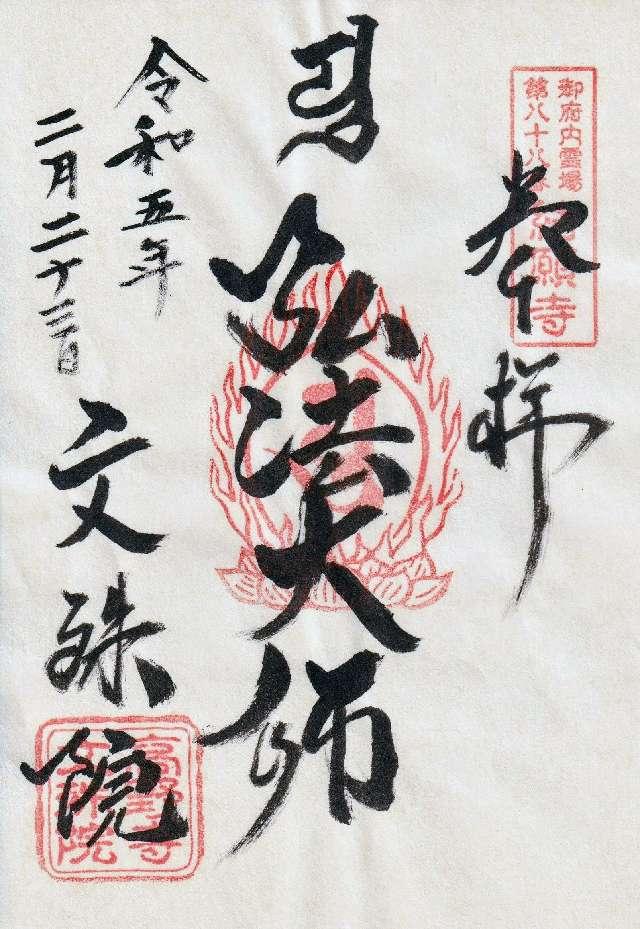 御府内霊場
第八十八番結願寺
奉拝
弘法大師
令和五年
二月二十三日
文殊院
高野寺
文殊院